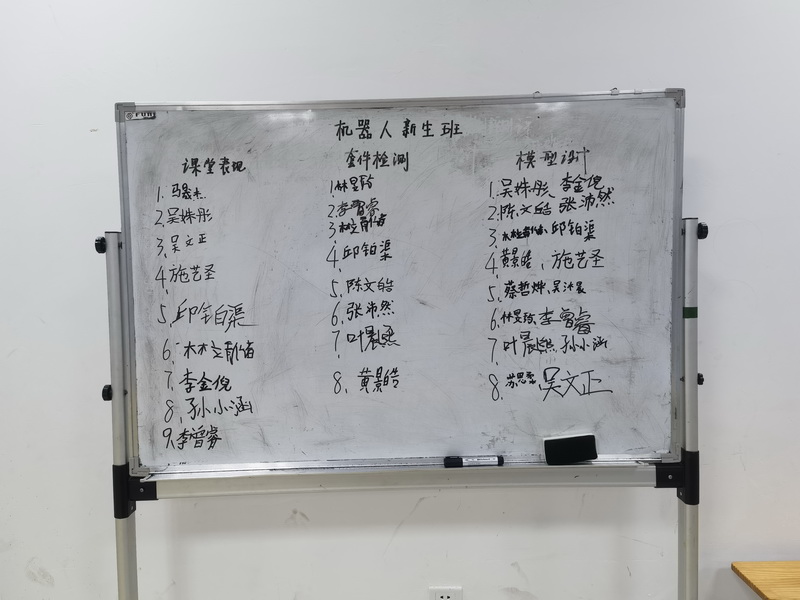 机器人新生班
课堂表现
1. 马晟杰
2. 吴姝彤
3. 吴文正
4. 施艺圣
5. 邱铂渠
6.
7. 李金倪
8. 孙小涵
9. 李曾睿
套件检测
1. 林旻玲
2. 李曾睿
3.
4. 邱铂渠
5. 陈文皓
6. 张沛然
7. 叶晨熙
8. 黄景皓
模型设计
1. 吴姝彤、李金倪
2. 陈文皓 张沛然
3. 邱铂渠
4. 黄景皓、施艺圣
5. 蔡哲烨、吴沐宸
6. 林旻玲、李曾睿
7. 叶晨熙、孙小涵
8. 吴文正